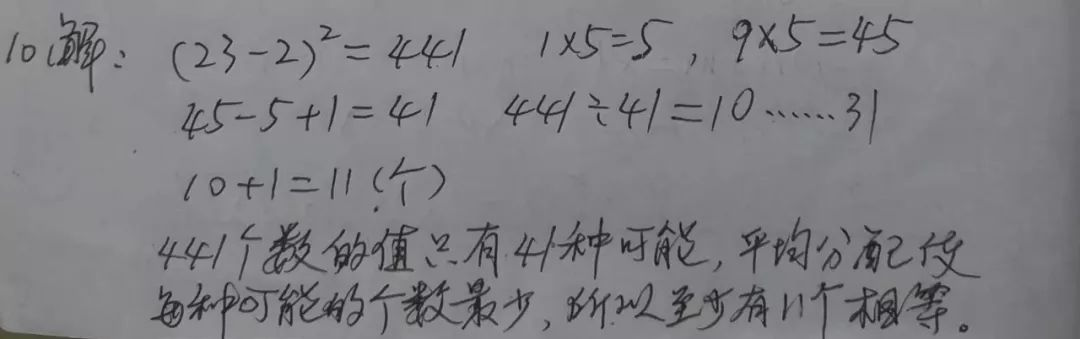 10解: (23-2)²=441 1×5=5, 9×5=45
45-5+1=41 441÷41=10……31
10+1=11(个)
441个数的值只有41种可能,平均分配使
每种可能的个数最少,所以至少有11个相等。